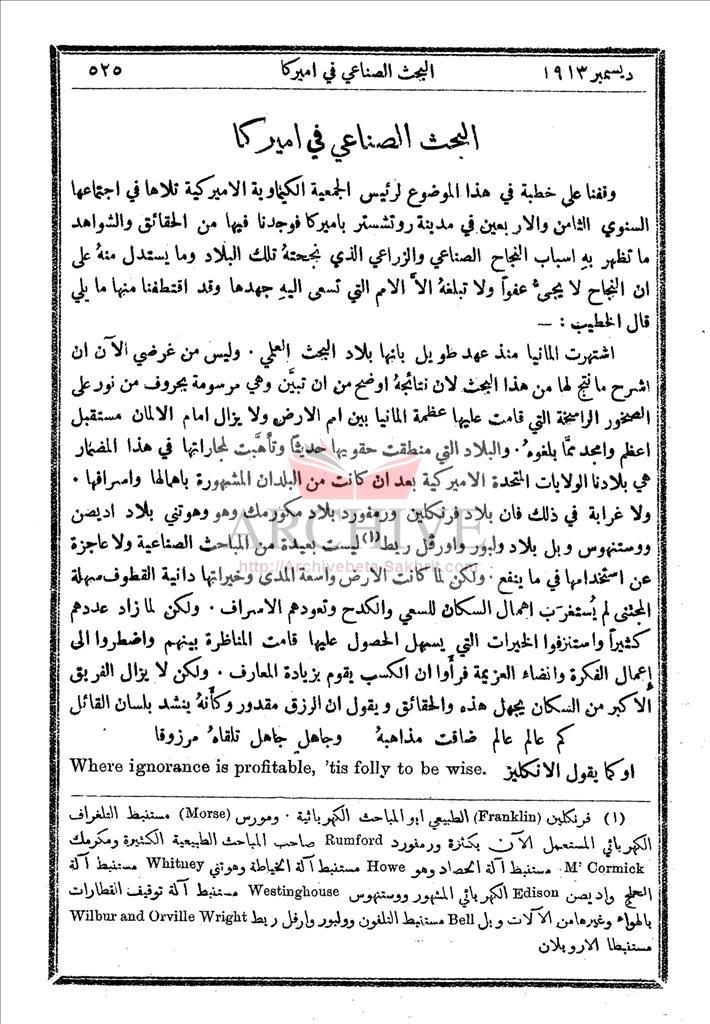 ديسمبر ١٩١٣ البحث الصناعي في اميركا ٥٢٥
البحث الصناعي في اميركا
وقفنا على خطبة في هذا الموضوع لرئيس الجمعية الكيماوية الاميركية تلاها في اجتماعها
السنوي الثامن والاربعين في مدينة روتشستر باميركا فوجدنا فيها من الحقائق والشواهد
ما تظهر به اسباب النجاح الصناعي والزراعي الذي نجحتهُ تلك البلاد وما يستدل منهُ على
ان النجاح لا يجيءُ عفواً ولا تبلغهُ الاَّ الامم التي تسعى اليهِ جهدها وقد اقتطفنا منها ما يلي
قال الخطيب : —
اشتهرت المانيا منذ عهد طويل بانها بلاد البحث العلمي . وليس من غرضي الآن ان
اشرح ما نتج لها من هذا البحث لان نتائجهُ اوضح من ان تبيَّن وهي مرسومة بحروف من نور على
الصخور الراسخة التي قامت عليها عظمة المانيا بين امم الارض ولا يزال امام الالمان مستقبل
اعظم وامجد ممَّا بلغوهُ . والبلاد التي منطقت حقويها حديثاً وتأهَّبت لمجاراتها في هذا المضمار
هي بلادنا الولايات المتحدة الاميركية بعد ان كانت من البلدان المشهورة باهمالها واسرافها .
ARCHIVE
http://Archivebeta.Sakhrit.com
ولا غرابة في ذلك فان بلاد فرنكلين ورمفورد بلاد مكورمك وهو وهوتني بلاد اديصن
ووستنهوس وبل بلاد ولبور واورڤل ريط(١) ليست بعيدة من المباحث الصناعية ولا عاجزة
عن استخدامها في ما ينفع . ولكن لما كانت الارض واسعة المدى وخيراتها دانية القطوف سهلة
المجتنى لم يُستغرَب اهمال السكان للسعي والكدح وتعودهم الاسراف . ولكن لما زاد عددهم
كثيراً واستنزفوا الخيرات التي يسهل الحصول عليها قامت المناظرة بينهم واضطروا الى
إعمال الفكرة وانضاء العزيمة فرأوا ان الكسب يقوم بزيادة المعارف . ولكن لا يزال الفريق
الاكبر من السكان يجهل هذه والحقائق ويقول ان الرزق مقدور وكأنهُ ينشد بلسان القائل
كم عالم عالم ضاقت مذاهبهُ وجاهلٍ جاهل تلقاهُ مرزوقا
اوكما يقول الانكليز Where ignorance is profitable, 'tis folly to be wise.
(١) فرنكلين (Franklin) الطبيعي ابو المباحث الكهربائية . ومورس (Morse) مستنبط التلغراف
الكهربائي المستعمل الآن بكثرة ورمفورد Rumford صاحب المباحث الطبيعية الكثيرة ومكرمك
M' Cormick مستنبط آلة الحصاد وهو Howe مستنبط آلة الخياطة وهوتني Whitney مستنبط آلة
الحلج واديصن Edison الكهربائي المشهور ووستنهوس Westinghouse مستنبط آلة توقيف القطارات
بالهواء وغيرها من الآلات وبل Bell مستنبط التلفون وولبور وارفل ريط Wilbur and Orville Wright
مستنبطا الاروبلان